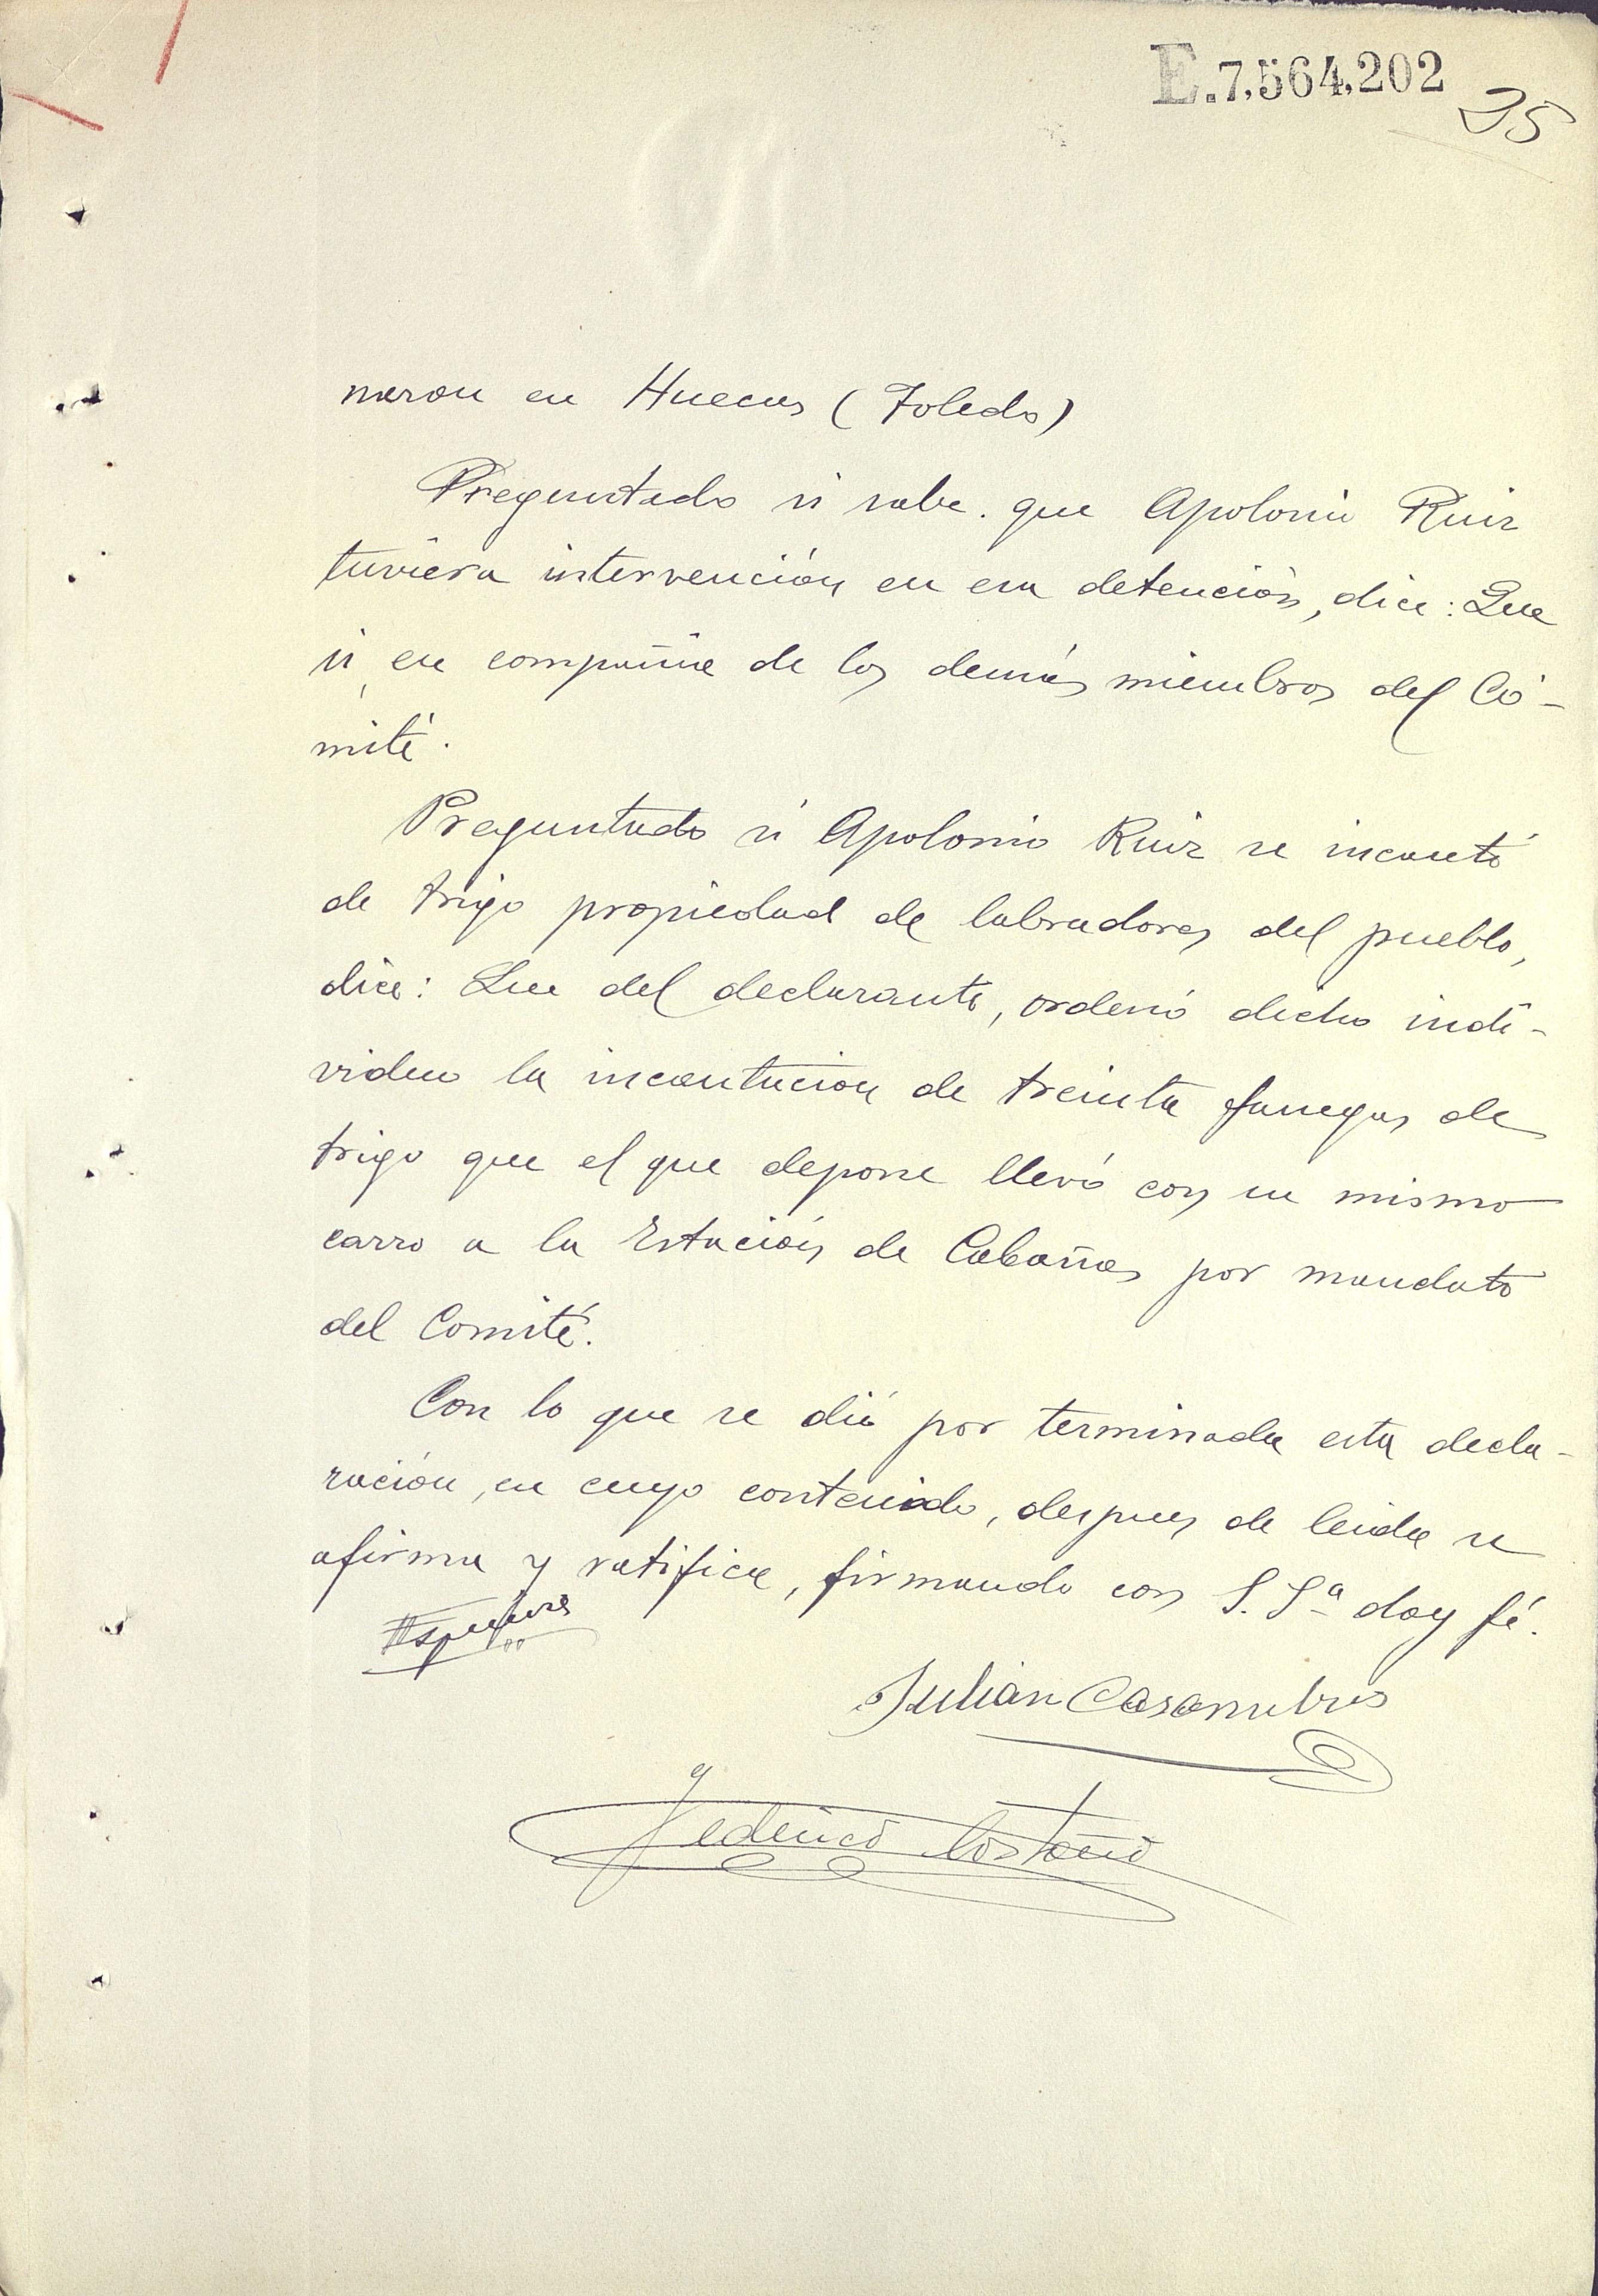 E.7,564,202
25
neron en Huecas (Toledo)
Preguntado si sabe. que Apolonio Ruiz
tuviera intervención en esa detención, dice: Que
si, en compañia de los demás miembros del Co-
mité.
Preguntado si Apolonio Ruiz se incautó
de trigo propiedad de labradores del pueblo,
dice: Que del declarante, ordenó dicho indi-
viduo la incautacion de treinta fanegas de
trigo que el que depone llevó con su mismo
carro a la Estación de Cabañas por mandato
del Comité.
Con lo que se dió por terminada esta decla-
ración, en cuyo contenido, despues de leida se
afirma y ratifica, firmando con S. Sª doy fé.
Julian Casarrubios
Federico